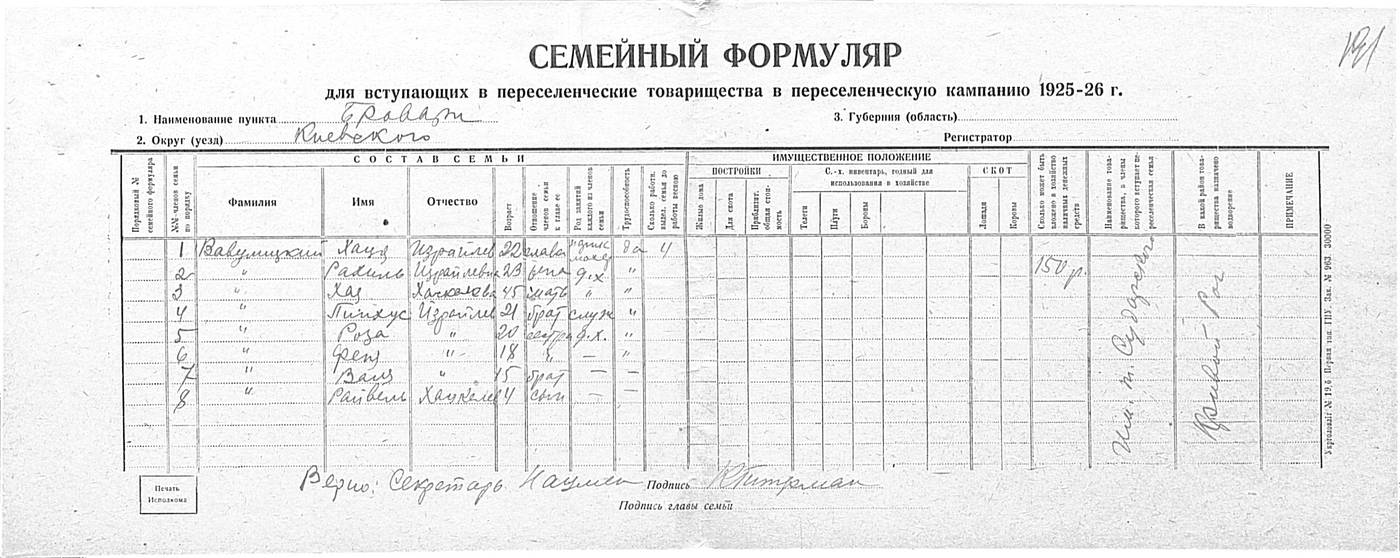 191
СЕМЕЙНЫЙ ФОРМУЛЯР
для вступающих в переселенческие товарищества в переселенческую кампанию 1925-26 г.
1. Наименование пункта Бровари 3. Губерния (область)
2. Округ (уезд) Киевского Регистратор
СОСТАВ СЕМЬИ ИМУЩЕСТВЕННОЕ ПОЛОЖЕНИЕ
ПОСТРОЙКИ С.-х. инвентарь, годный для использования в хозяйстве СКОТ
Порядковый № семейного формуляра №№ членов семьи по порядку Фамилия Имя Отчество Возраст Отношение членов семьи к главе ее Род занятий каждого из членов семьи Трудоспособность Сколько работн. выдел. семья до работы весною Жилые дома Для скота Приблизит. общая стоимость Телеги Плуги Бороны Лошади Коровы Сколько может быть вложено в хозяйство наличных денежных средств Наименование товарищества, в члены которого вступает переселенческая семья В какой район товарищества назначено водворение ПРИМЕЧАНИЕ
1 Вавулицкий Израйлев 22 глава да 4
2 " Рахиль Израйлевна 23 жена д.х. " 150 р.
3 " Хая 45 мать " "
4 " Пинхус Израйлев 21 брат служ "
5 " Роза " 20 сестра д.х. "
6 " Феня " 18 " — "
7 " " 15 брат — —
8 " 4 сын — —
Кривой Рог
Печать Исполкома
Верно: Секретарь Подпись
Подпись главы семьи
Укрголовліт № 19,6 Первая тип. ГПУ. Зак. № 963. 30000